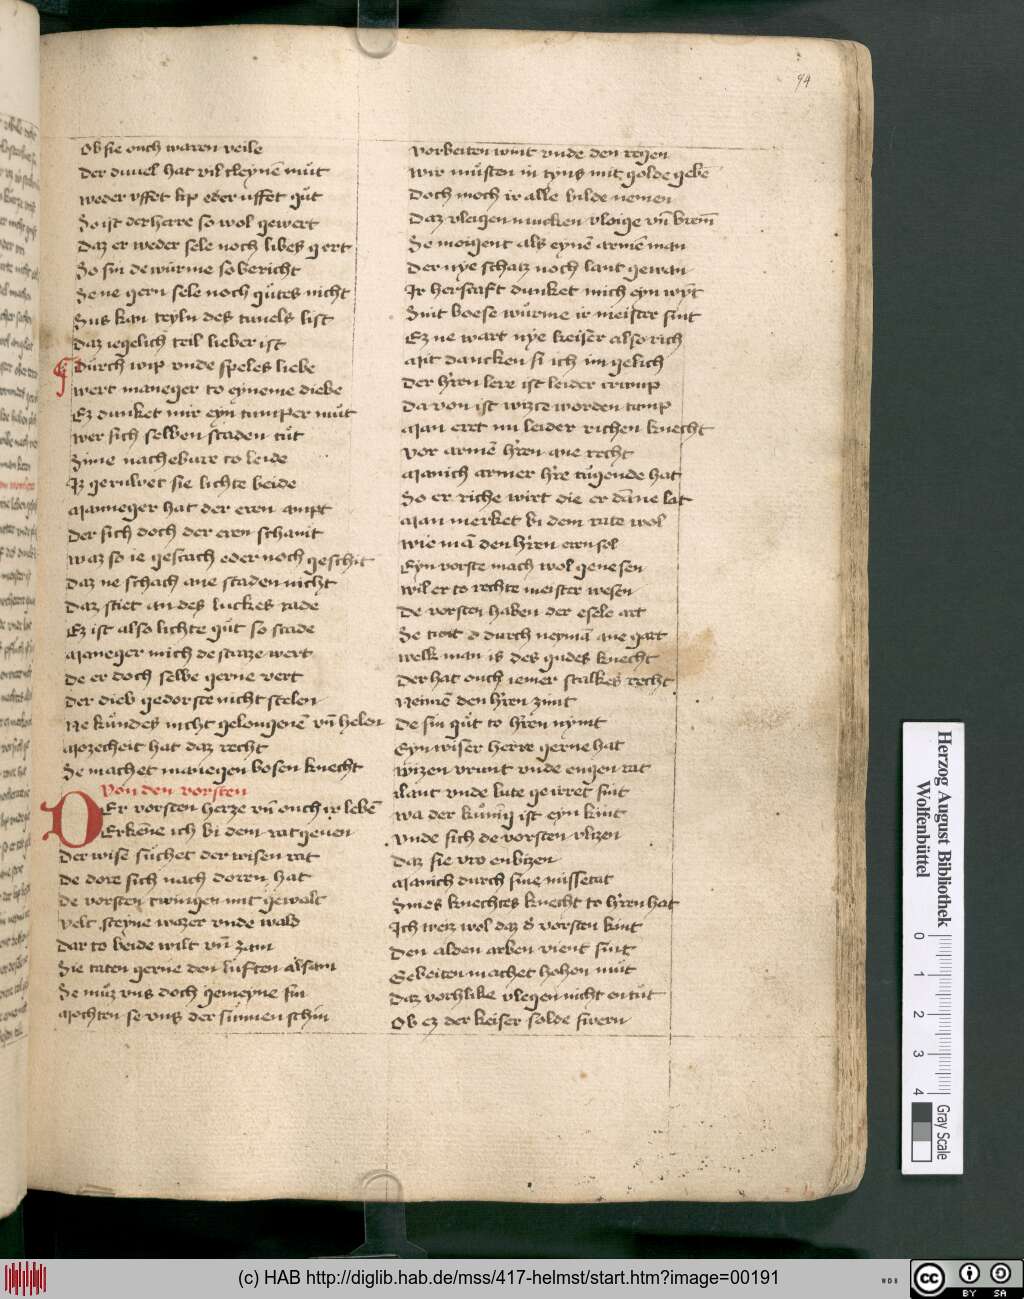 94
Ob sie ouch waren veile
Der duuel hat vil cleynē muͦt
weder vffet kip eder uffet guͦt
So ist der herre so wol gewert
Daz er weder sele noch libes gert
So sin de würme so bericht
Se ne gern sele noch guͦtes nicht
Sus kan teyln des tuuels list
Daz iegelich teil lieber ist
Durch wip vnde speles liebe
wert maneger to eyneme diebe
Ez dunket mir eyn tumper muͦt
wer sich selben staden tuͦt
Sime nachebure to leide
Iz geruwet sie lichte beide
Manneger hat der eren ampt
Der sich doch der eren schamt
waz so ie gescach eder noch geschit
Daz ne schach ane staden nicht
Daz stiet an des luckes rade
Ez ist also lichte guͦt so scade
Maneger mich de straze wert
De er doch selbe gerne vert
Der dieb gedorste nicht stelen
Ne kundes nicht gelougenē vn̄ helen
Mozecheit hat daz recht
Se machet manegen bosen knecht
Von den vorsten
DEr vorsten herze vn̄ ouch ir lebē
Erkēne ich bi dem ratgeuen
Der wise suͦchet der wisen rat
De dore sich nach doren hat
De vorsten twingen mit gewalt
Velt steyne wazer vnde wald
Dar to beide wilt vn̄ zam
Sie taten gerne den luften alsam
Se muͦz vns doch gemeyne sin
Mochten se vns der sunnen schin
Vorbeiten wint vnde den regen
wir muͦsten in tyns mit golde gebē
Doch moch ir alle bilde nemen
Daz vleigen mucken vloige vn̄ brem̄
Se moigent als eynē armē man
Der nye schatz noch lant gewan
Ir herscaft dunket mich eyn wyͦt
Sint boese würme ir meister sint
Ez ne wart nye keiser also rich
Mit dancken si ich im gelich
Der hʼren lere ist leider crump
Da von ist wizce worden tump
Man eret nu leider richen knecht
Vor armē hʼren ane recht
Manich armer hʼre tuͦgende hat
So er riche wirt die er dāne lat
Man merket bi dem rate wol
wie mā den hʼren eren sol
Eyn vorste mach wol genesen
wil er to rechte meister wesen
De vorsten haben der esele art
Se tuͦt durch neymā ane gart
welk man is des gudes knecht
Der hat ouch iemer stalkes recht
Neimē den hʼren zimt
De sin guͦt to hʼren nymt
Eyn wiser herre gerne hat
Wizen vrunt vnde engen rat
Lant vnde lute geirret sint
wa der kuͦnig ist eyn kint
Vnde sich de vorsten vlizen
Daz sie vro enbizen
Manich durch sine missetat
Sines knechtes knecht to hʼren hat
Ich weiz wol daz d' vorsten kint
Den alden arben vient sint
Gebeiten machet hohen muͦt
Daz vochlike vlegen nicht entuͦt
Ob ez der keiser solde swern
Herzog August Bibliothek
Wolfenbüttel
0 1 2 3 4
Gray Scale
(c) HAB http://diglib.hab.de/mss/417-helmst/start.htm?image=00191
WDB
CC BY SA